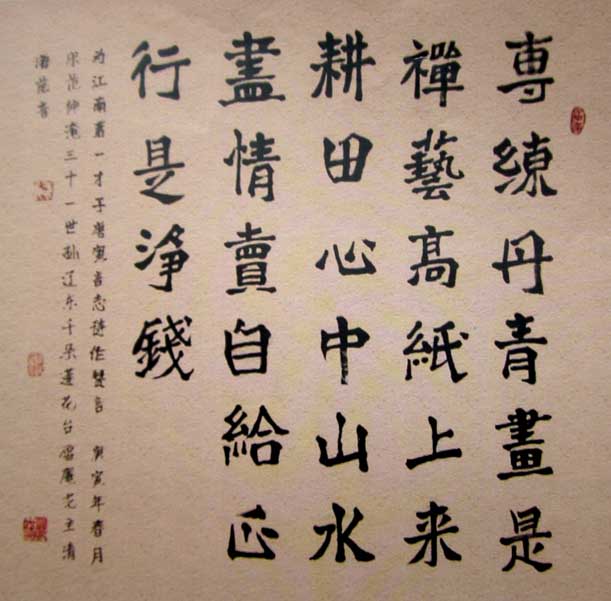 専練丹青畫是
禪藝高紙上来
耕田心中山水
盡情賣自給正
行是淨錢
为江南第一才子唐寅言志 作 言 庚寅年春月
宋范仲淹三十一世孙辽东千朵蓮花台 主清
海范音